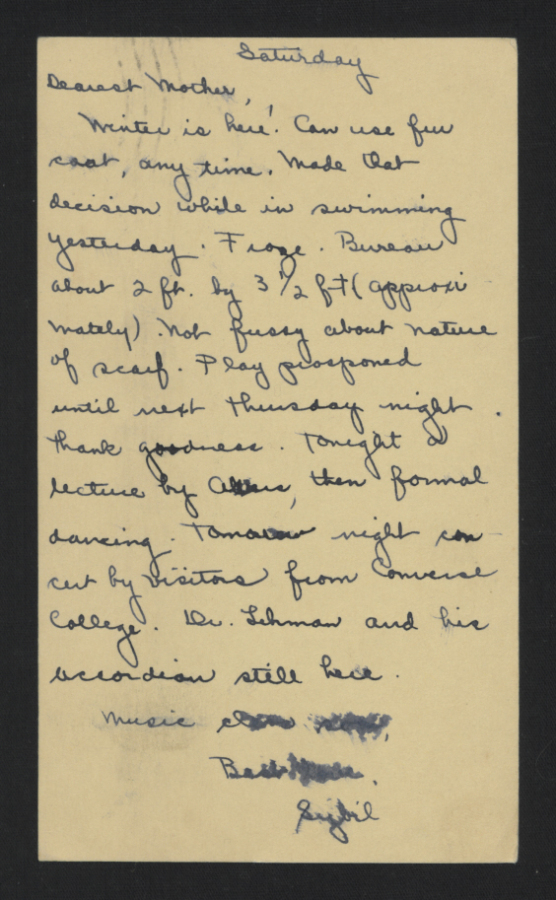 Saturday
Dearest Mother,
Winter is here! Can use fur
coat, any time. Made that
decision while in swimming
yesterday. Froze. Bureau
about 2 ft. by 3 1/2 ft (approxi
mately). Not fussy about nature
of scarf. Play prosponed
until next Thursday night.
Thank goodness. Tonight a
lecture by, then formal
dancing. Tomorrow night con-
cert by visitors from Converse
College. Dr. Lehman and his
accordian still here.
Music
Best.
Sybil